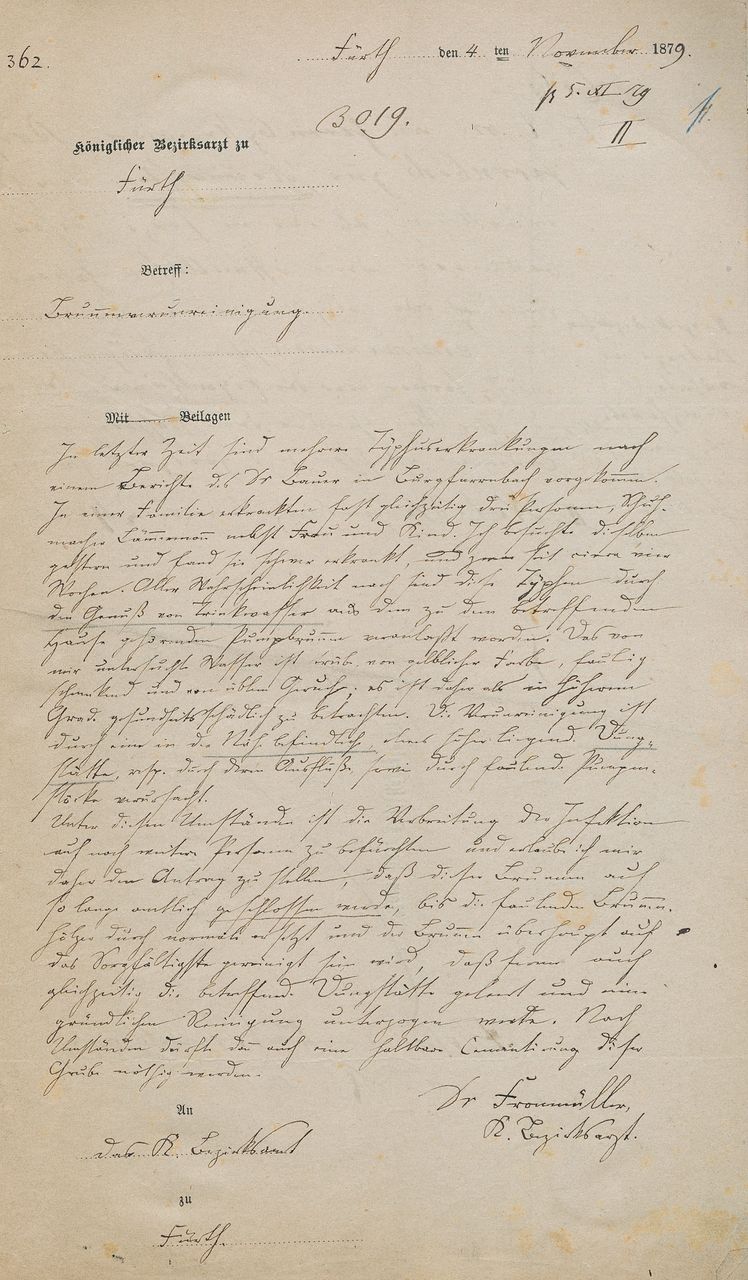 362.
Fürth den 4 ten November 1879.
5. XI 79
3019.
II
Königlicher Bezirksarzt zu
Fürth
Betreff:
Brunnenverunreinigung.
Mit Beilagen
In letzter Zeit sind mehrere Typhuserkrankungen nach
einem Berichte des Dr Bauer in Burgfarrnbach vorgekommen.
In einer Familie erkrankten fast gleichzeitig drei Personen, Schuh-
macher Lämmermann nebst Frau und Kind. Ich besuchte dieselben
gestern und fand sie schwer erkrankt, und zwar seit vier
Wochen. Aller Wahrscheinlichkeit nach sind diese Typhen durch
den Genuß von Trinkwasser aus dem zu dem betreffenden
Hause gehörenden Pumpbrunnen veranlaßt worden. Das von
mir untersuchte Wasser ist trübe, von gelblicher Farbe, faulig
schmeckend und von üblem Geruch; es ist daher als in höherem
Grade gesundheitsschädlich zu betrachten. Die Verunreinigung ist
durch eine in der Nähe befindliche, etwas höher liegende Dung-
stätte, resp. durch deren Ausflüße, sowie durch faulende Pumpen-
stöcke verursacht.
Unter diesen Umständen ist die Verbreitung der Infektion
auf noch weitere Personen zu befürchten und erlaube ich mir
daher den Antrag zu stellen, daß dieser Brunnen auf
so lange amtlich geschlossen werde, bis die faulenden Brunnen-
hölzer durch normale ersetzt und der Brunnen überhaupt auf
das Sorgfältigste gereinigt sein wird, daß ferner auch
gleichzeitig die betreffende Dungstätte geleert und einer
gründlichen Reinigung unterzogen werde. Nach
Umständen dürfte dann auch eine haltbare Cementirung dieser
Grube nöthig werden.
Dr Fronmüller,
K. Bezirksarzt.
An
das K. Bezirksamt
zu
Fürth